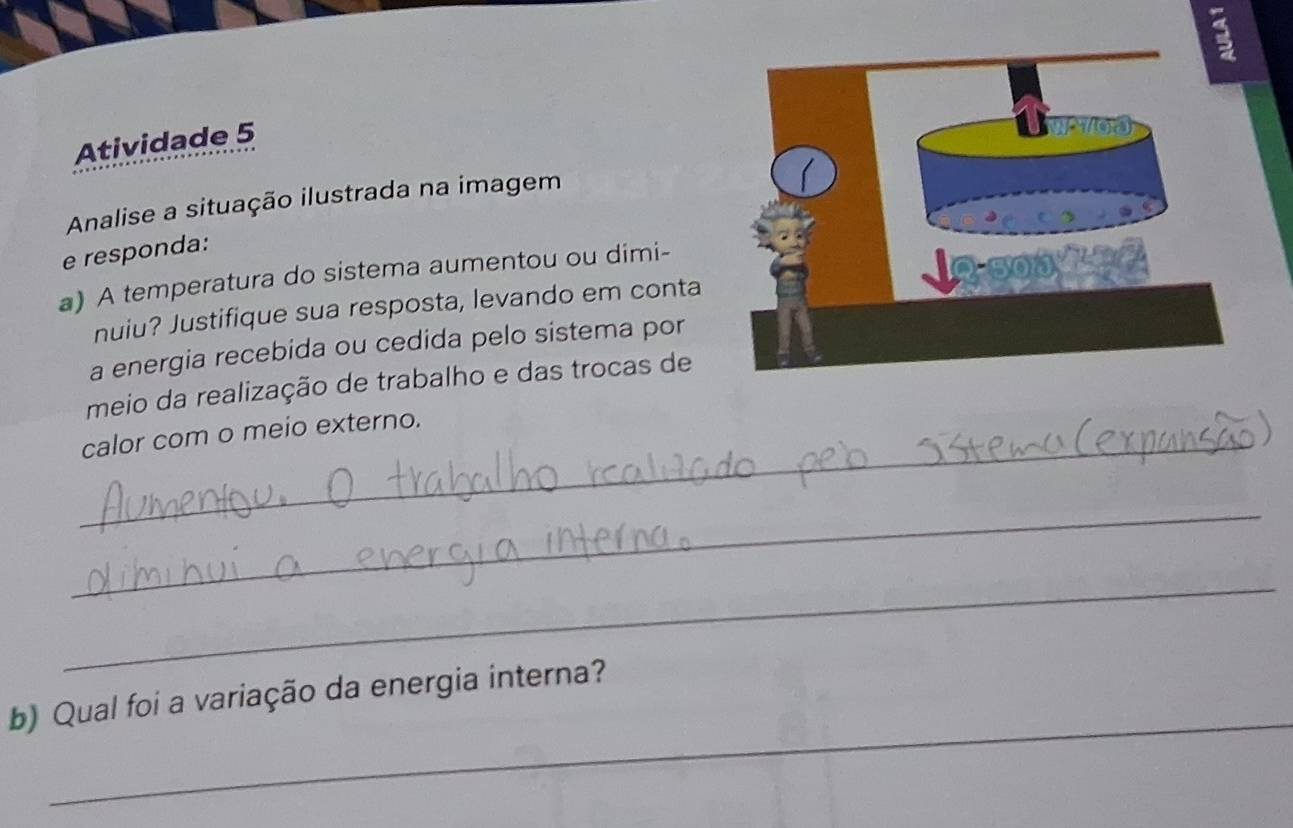 AULA 1
Atividade 5
Analise a situação ilustrada na imagem
e responda:
a) A temperatura do sistema aumentou ou dimi-
nuiu? Justifique sua resposta, levando em conta
a energia recebida ou cedida pelo sistema por
meio da realização de trabalho e das trocas de
calor com o meio externo.
Aumentou. O trabalho realizado pelo sistema (expansão)
diminui a energia interna.
b) Qual foi a variação da energia interna?